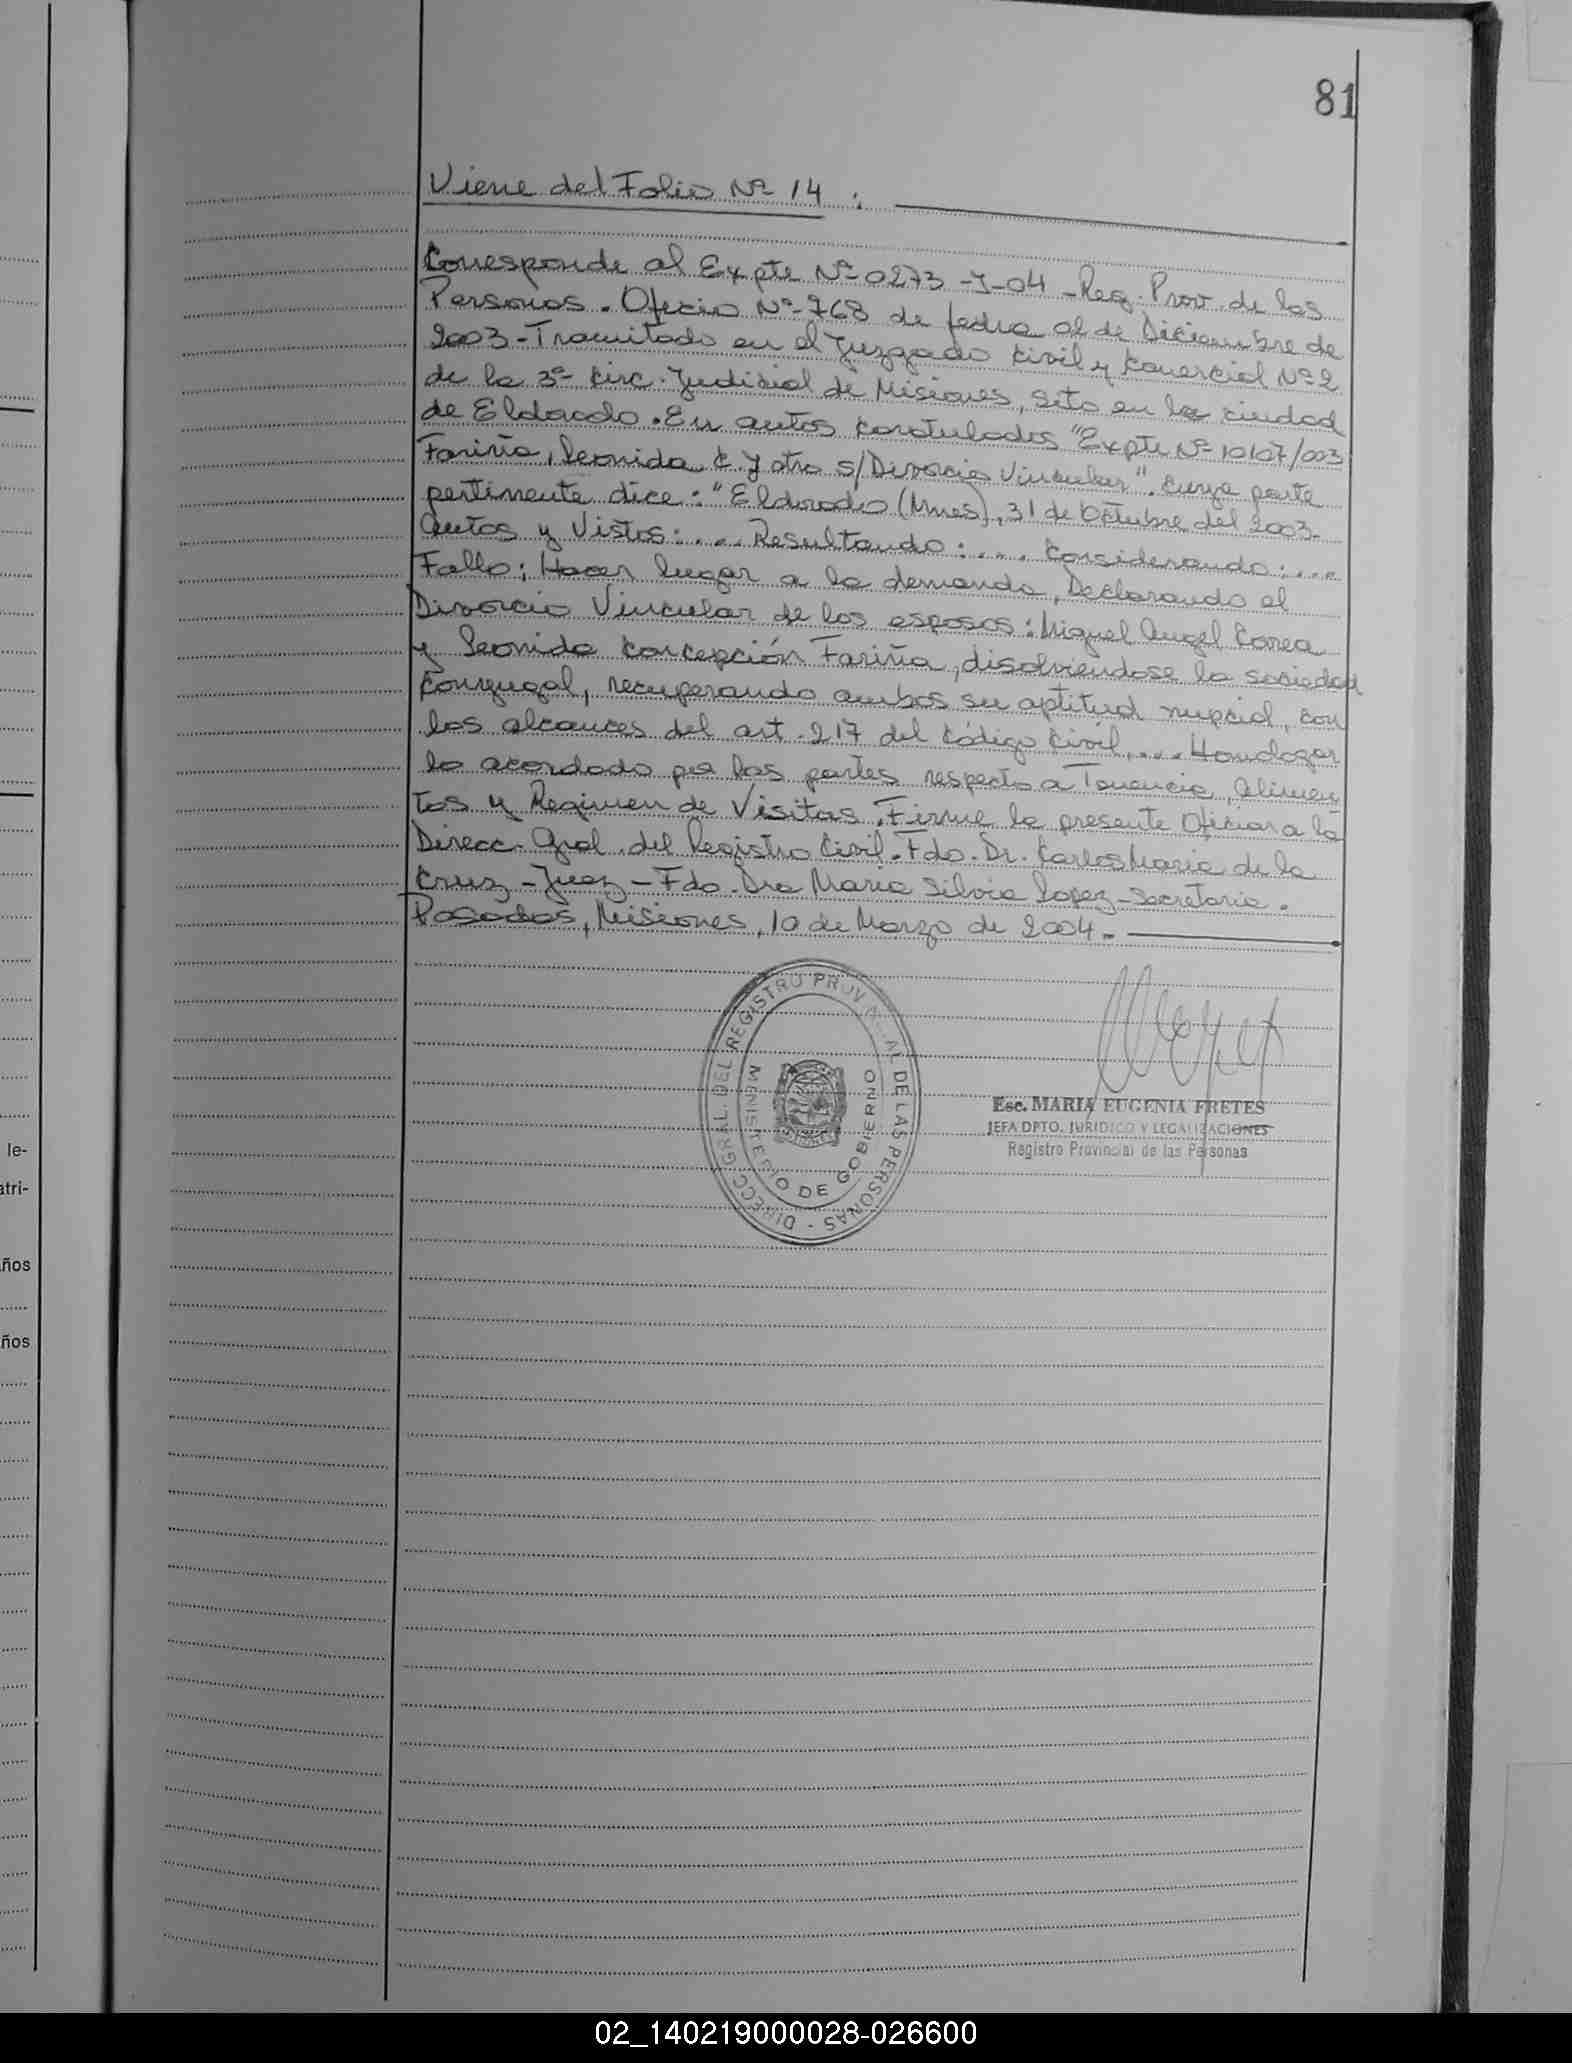 81
Viene del Folio Nº 14 :
Corresponde al Expte Nº 0273-J-04 - Reg. Prov. de las
Personas. Oficio Nº 768 de fecha 01 de Diciembre de
2003 - Tramitado en el Juzgado Civil y Comercial Nº 2
de la 3ª Circ. Judicial de Misiones, sito en la ciudad
de Eldorado. En autos caratulados "Expte Nº 10107/003
Fariña, Leonida C. y otro s/ Divorcio Vincular". Cuya parte
pertinente dice: "Eldorado (Mnes), 31 de Octubre del 2003.
Autos y Vistos: .... Resultando: .... Considerando: ....
Fallo: Hacer lugar a la demanda, Declarando el
Divorcio Vincular de los esposos: Miguel Angel Correa
y Leonida Concepción Fariña, disolviendose la sociedad
Conyugal, recuperando ambos su aptitud nupcial, con
los alcances del art. 217 del Código Civil, ... Homologar
lo acordado por las partes respecto a Tenencia, Alimen
tos y Regimen de Visitas. Firme la presente Oficiar a la
Direcc. Gral. del Registro Civil. Fdo. Dr. Carlos Maria de la
Cruz - Juez - Fdo. Dra Maria Silvia Lopez - Secretaria.
Posadas, Misiones, 10 de Marzo de 2004.-
DIRECC. GRAL. DEL REGISTRO PROV AL DE LAS PERSONAS -
MINISTERIO DE GOBIERNO
MISIONES
Esc. MARIA EUGENIA FRETES
JEFA DPTO. JURIDICO Y LEGALIZACIONES
Registro Provincial de las Personas
le-
atri-
ños
ños
02_140219000028-026600